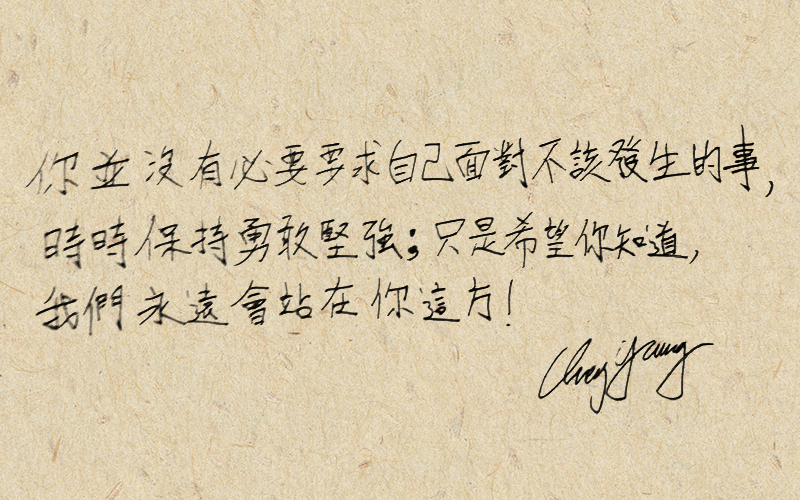 你並沒有必要要求自己面對不該發生的事,
時時保持勇敢堅強;只是希望你知道,
我們永遠會站在你這方!